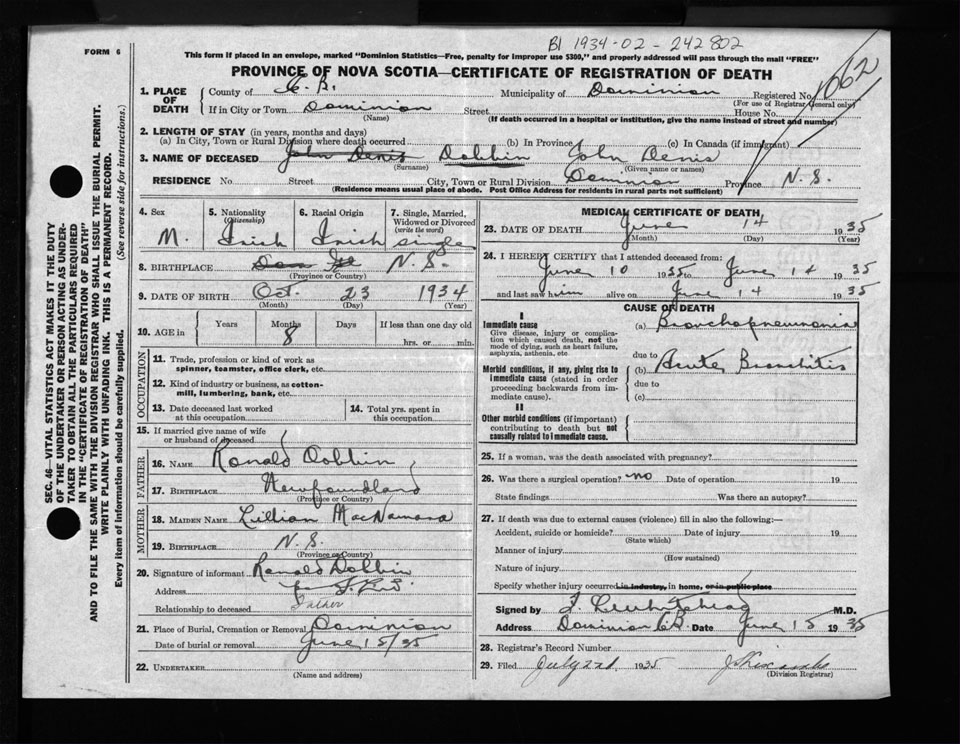 FORM 6
This form if placed in an envelope, marked "Dominion Statistics—Free, penalty for improper use $300," and properly addressed will pass through the mail "FREE"
B1 1934-02-242802
PROVINCE OF NOVA SCOTIA—CERTIFICATE OF REGISTRATION OF DEATH
1062
1. PLACE OF DEATH
County of C. B. Municipality of Dominion Registered No.
(For use of Registrar General only)
If in City or Town Dominion Street House No.
(Name) (If death occurred in a hospital or institution, give the name instead of street and number)
2. LENGTH OF STAY (in years, months and days)
(a) In City, Town or Rural Division where death occurred (b) In Province (c) In Canada (if immigrant)
3. NAME OF DECEASED John Denis Dobbin John Denis
(Surname) (Given name or names)
RESIDENCE No. Street City, Town or Rural Division Dominion Province N. S.
(Residence means usual place of abode. Post Office Address for residents in rural parts not sufficient)
SEC. 46—VITAL STATISTICS ACT MAKES IT THE DUTY
OF THE UNDERTAKER OR PERSON ACTING AS UNDER-
TAKER TO OBTAIN ALL THE PARTICULARS REQUIRED
IN THE "CERTIFICATE OF REGISTRATION OF DEATH"
AND TO FILE THE SAME WITH THE DIVISION REGISTRAR WHO SHALL ISSUE THE BURIAL PERMIT.
WRITE PLAINLY WITH UNFADING INK. THIS IS A PERMANENT RECORD.
Every item of information should be carefully supplied. (See reverse side for instructions.)
4. Sex
M.
5. Nationality
(Citizenship)
Irish
6. Racial Origin
Irish
7. Single, Married,
Widowed or Divorced
(write the word)
single
8. BIRTHPLACE N. S.
(Province or Country)
9. DATE OF BIRTH Oct. 23 1934
(Month) (Day) (Year)
10. AGE in Years Months Days If less than one day old
8 hrs. or min.
OCCUPATION
11. Trade, profession or kind of work as
spinner, teamster, office clerk, etc.
12. Kind of industry or business, as cotton-
mill, lumbering, bank, etc.
13. Date deceased last worked
at this occupation
14. Total yrs. spent in
this occupation
15. If married give name of wife
or husband of deceased
FATHER
16. NAME Ronald Dobbin
17. BIRTHPLACE Newfoundland
(Province or Country)
MOTHER
18. MAIDEN NAME Lillian MacNamara
19. BIRTHPLACE N. S.
(Province or Country)
20. Signature of informant Ronald Dobbin
Address
Relationship to deceased Father
21. Place of Burial, Cremation or Removal Dominion
Date of burial or removal June 15/35
22. UNDERTAKER
(Name and address)
MEDICAL CERTIFICATE OF DEATH
23. DATE OF DEATH June 14 1935
(Month) (Day) (Year)
24. I HEREBY CERTIFY that I attended deceased from:
June 10 1935 to June 14 1935
and last saw him alive on June 14 1935
CAUSE OF DEATH
I
Immediate cause (a) Bronchopneumonia
Give disease, injury or complica-
tion which caused death, not the
mode of dying, such as heart failure,
asphyxia, asthenia, etc.
due to
Morbid conditions, if any, giving rise to
immediate cause (stated in order
proceeding backwards from im-
mediate cause).
(b) Acute Bronchitis
due to
(c)
II
Other morbid conditions (if important)
contributing to death but not
causally related to immediate cause.
25. If a woman, was the death associated with pregnancy?
26. Was there a surgical operation? no Date of operation 19
State findings Was there an autopsy?
27. If death was due to external causes (violence) fill in also the following:—
Accident, suicide or homicide? Date of injury 19
(State which)
Manner of injury
(How sustained)
Nature of injury
Specify whether injury occurred in industry, in home, or in public place
Signed by M.D.
Address Dominion C.B. Date June 15 1935
28. Registrar's Record Number
29. Filed July 2nd 1935
(Division Registrar)